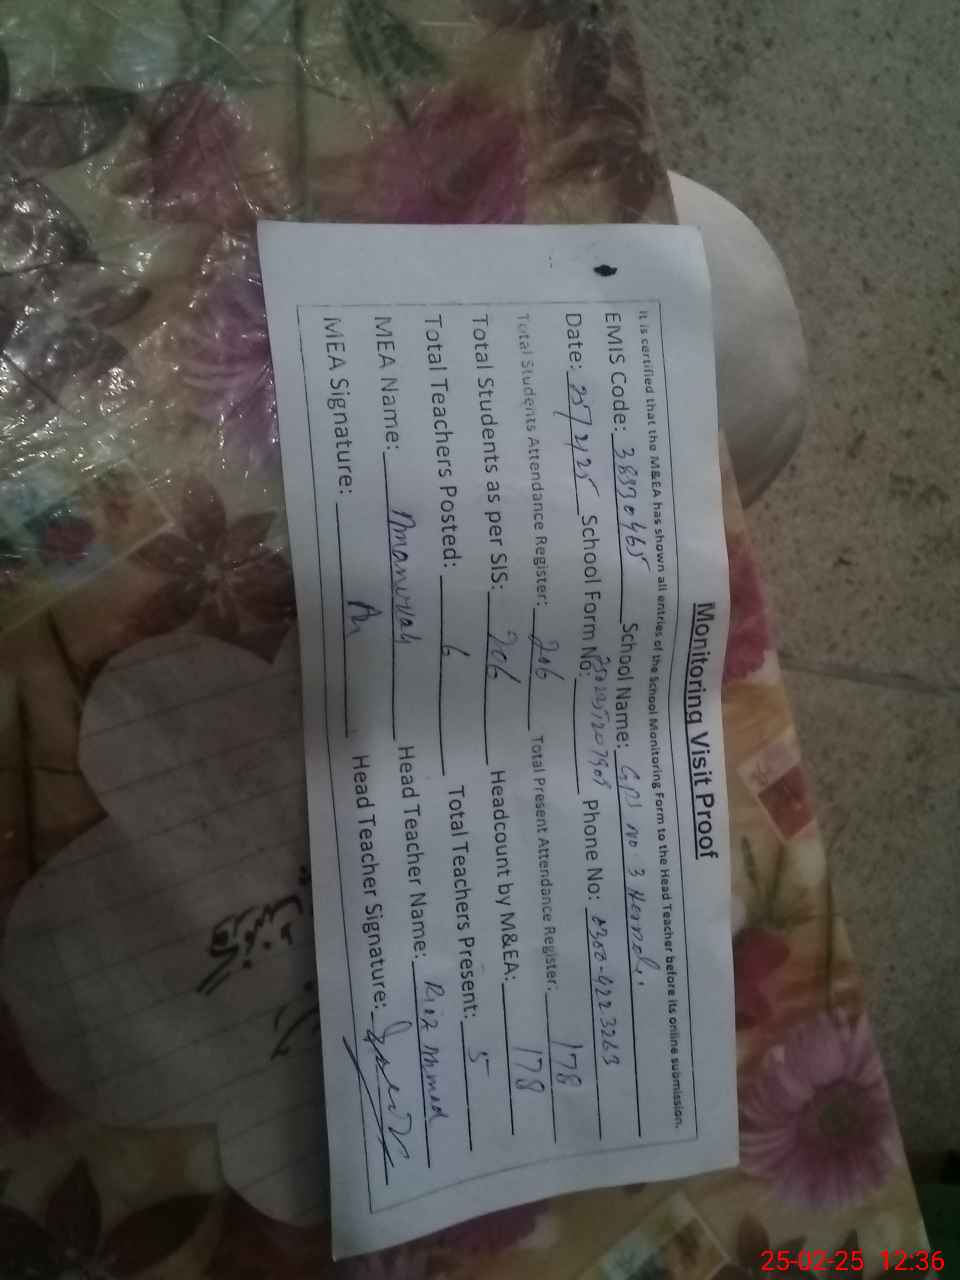 Monitoring Visit Proof
It is certified that the M&EA has shown all entries of the School Monitoring Form to the Head Teacher before its online submission.
EMIS Code: 38330465 School Name: GPS No. 3 Hernoli
Date: 25/2/25 School Form No: Phone No: 0300-4223263
Total Students Attendance Register: 206 Total Present Attendance Register: 178
Total Students as per SIS: 206 Headcount by M&EA: 178
Total Teachers Posted: 6 Total Teachers Present: 5
MEA Name: Amanullah Head Teacher Name: Riaz Ahmad
MEA Signature: Head Teacher Signature:
25-02-25 12:36